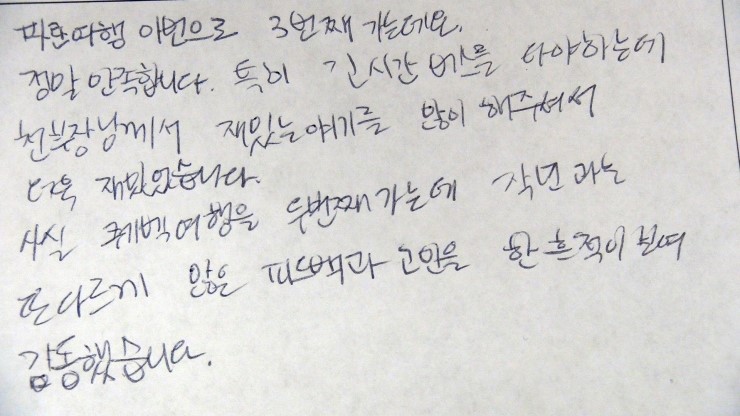 파란여행 이번으로 3번째 가는데요.
정말 만족합니다. 특히 긴시간 버스를 타야하는데
천부장님께서 재밌는얘기를 많이 해주셔서
더욱 재밌었습니다.
사실 퀘벡여행을 두번째가는데 작년과는
또다르게 많은 피드백과 고민을 한 흔적이 보여
감동했습니다.